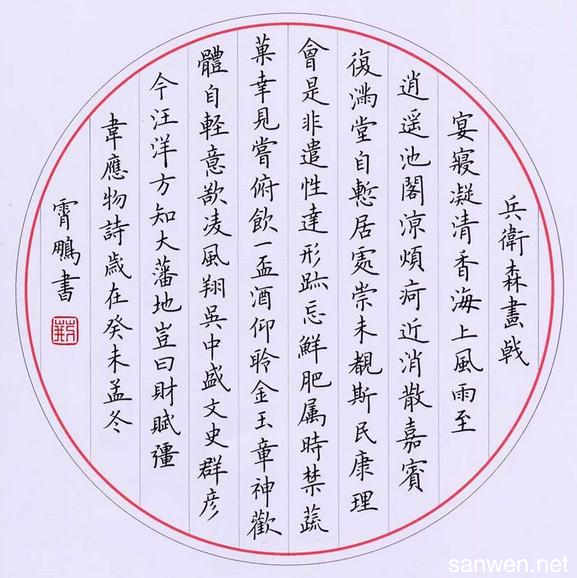 兵衛森畫戟
宴寢凝清香海上風雨至
逍遥池閣涼煩疴近消散嘉賓
復滿堂自慙居處崇未覩斯民康理
會是非遣性達形跡忘鮮肥属時禁蔬
菓幸見嘗俯飲一盃酒仰聆金玉章神歡
體自軽意欲凌風翔吳中盛文史群彦
今汪洋方知大藩地豈曰財賦彊
韋應物詩歲在癸未孟冬
霄鵬書
sanwen.net